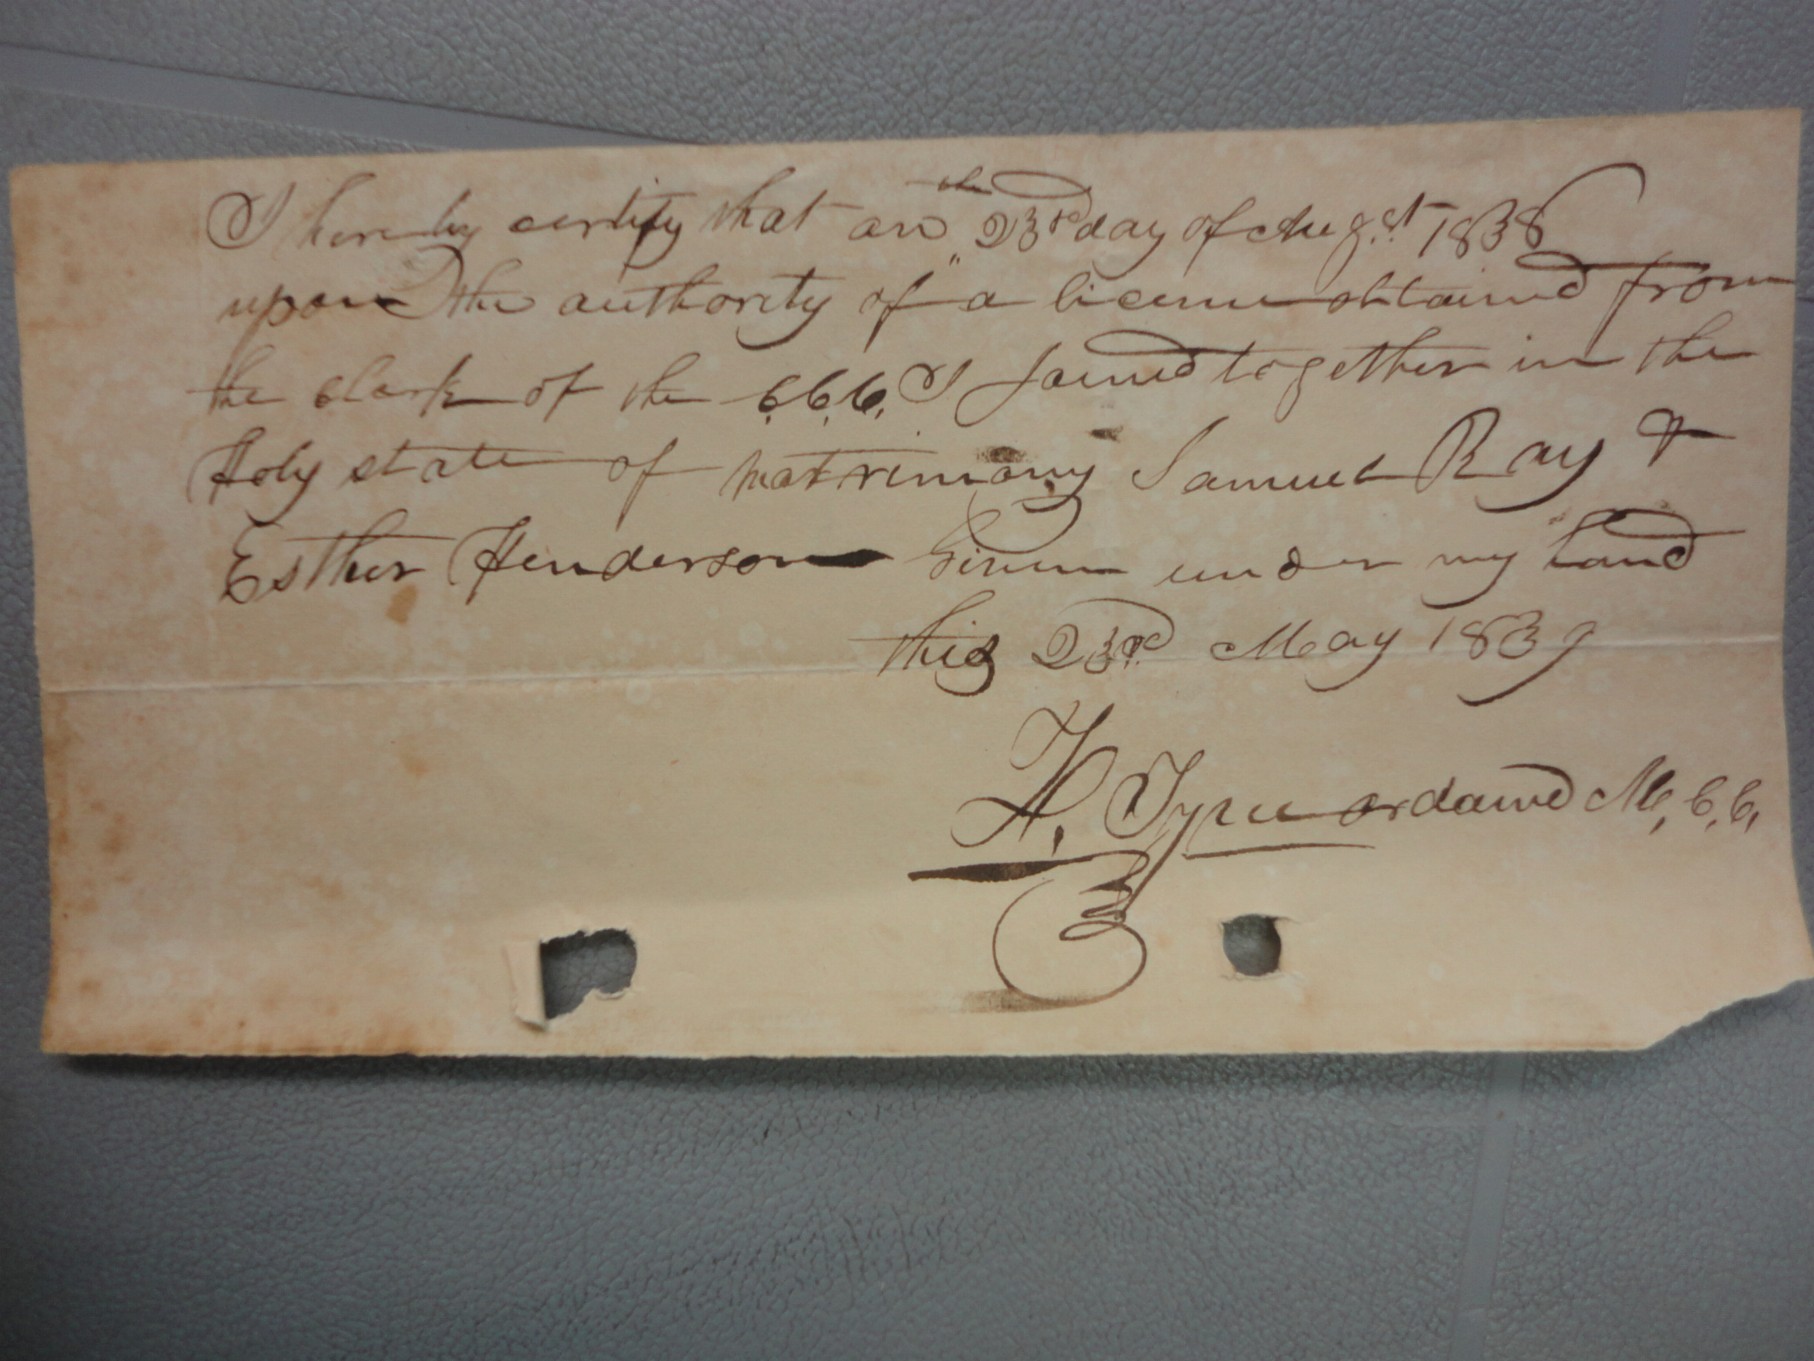 I hereby certify that on the 23rd day of Augst 1838
upon the authority of a licence obtained from
the Clerk of the C.C.C. I Joined together in the
Holy state of matrimony Samuel Ray &
Esther Henderson Given under my hand
this 23rd May 1839
H. Tyree ordained M, C. C,